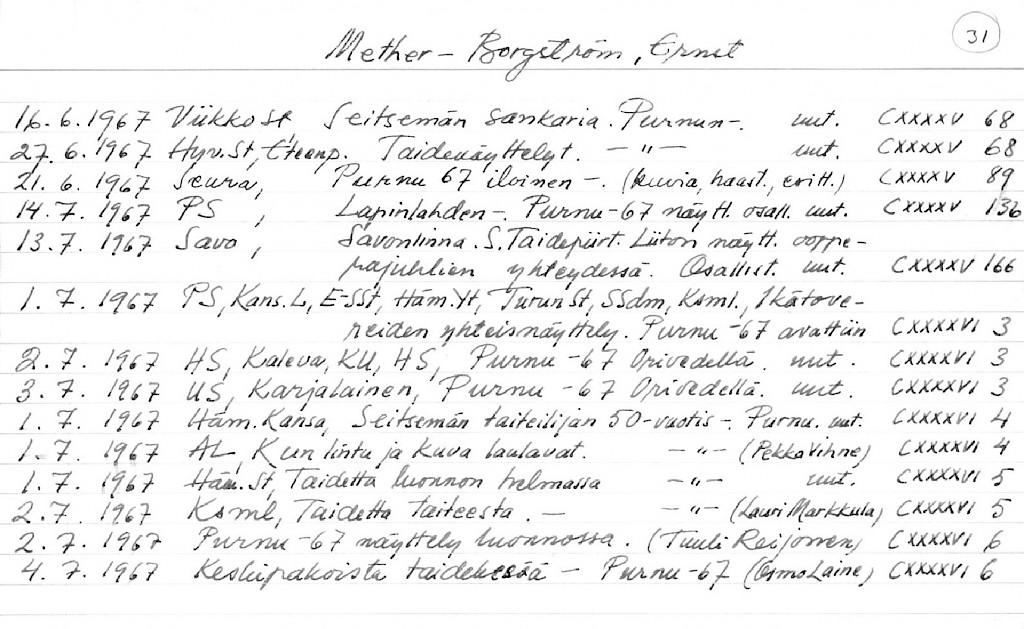 31
Mether - Borgström, Ernst
16.6.1967 ViikkoSt Seitsemän sankaria. Purnun -. uut. CXXXXV 68
27.6.1967 Hyv.St, Taidenäyttelyt. - " - uut. CXXXXV 68
21.6.1967 Seura, Purnu 67 iloinen -. (kuvia, haast., esitt.) CXXXXV 89
14.7.1967 PS, Lapinlahden -. Purnu-67 näytt. osall. uut. CXXXXV 136
13.7.1967 Savo, Savonlinna. S.Taidepiirt. Liiton näytt. ooppe-
rajuhlien yhteydessä. Osallist. uut. CXXXXV 166
1.7.1967 PS, Kans.L, E-SSt, Häm.Yt, TurunSt, SSdm, Ksml., Ikätove-
reiden yhteisnäyttely. Purnu-67 avattiin CXXXXVI 3
2.7.1967 HS, Kaleva, KU, HS, Purnu-67 Orivedellä. uut. CXXXXVI 3
3.7.1967 US, Karjalainen, Purnu-67 Orivedellä. uut. CXXXXVI 3
1.7.1967 Häm.Kansa, Seitsemän taiteilijan 50-vuotis - Purnu. uut. CXXXXVI 4
1.7.1967 AL, Kun lintu ja kuva laulavat. - " - (Pekka Vihne) CXXXXVI 4
1.7.1967 Häm.St, Taidetta luonnon helmassa - " - uut. CXXXXVI 5
2.7.1967 Ksml, Taidetta taiteesta. - - " - (Lauri Markkula) CXXXXVI 5
2.7.1967 Purnu-67 näyttely luonnossa. (Tuuli Reijonen) CXXXXVI 6
4.7.1967 Keskipakoista taidekesää - Purnu-67 (Osmo Laine) CXXXXVI 6